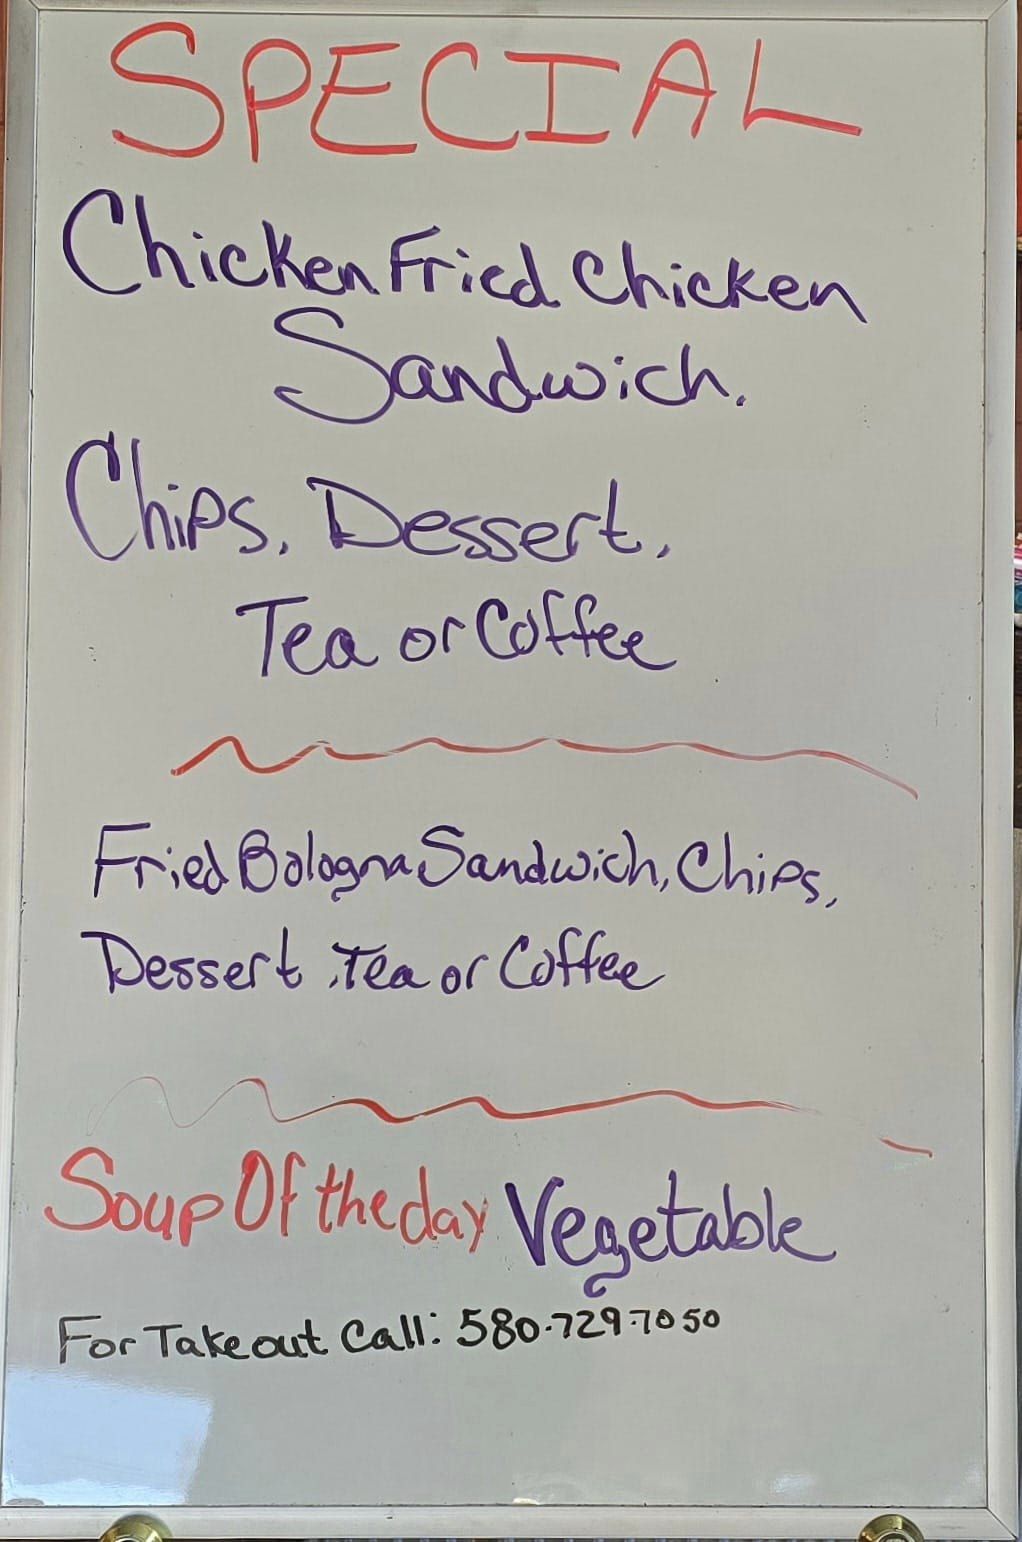 SPECIAL
Chicken Fried Chicken
Sandwich.
Chips, Dessert,
Tea or Coffee
Fried Bologna Sandwich, Chips,
Dessert, Tea or Coffee
Soup Of the day Vegetable
For Takeout Call: 580-729-7050